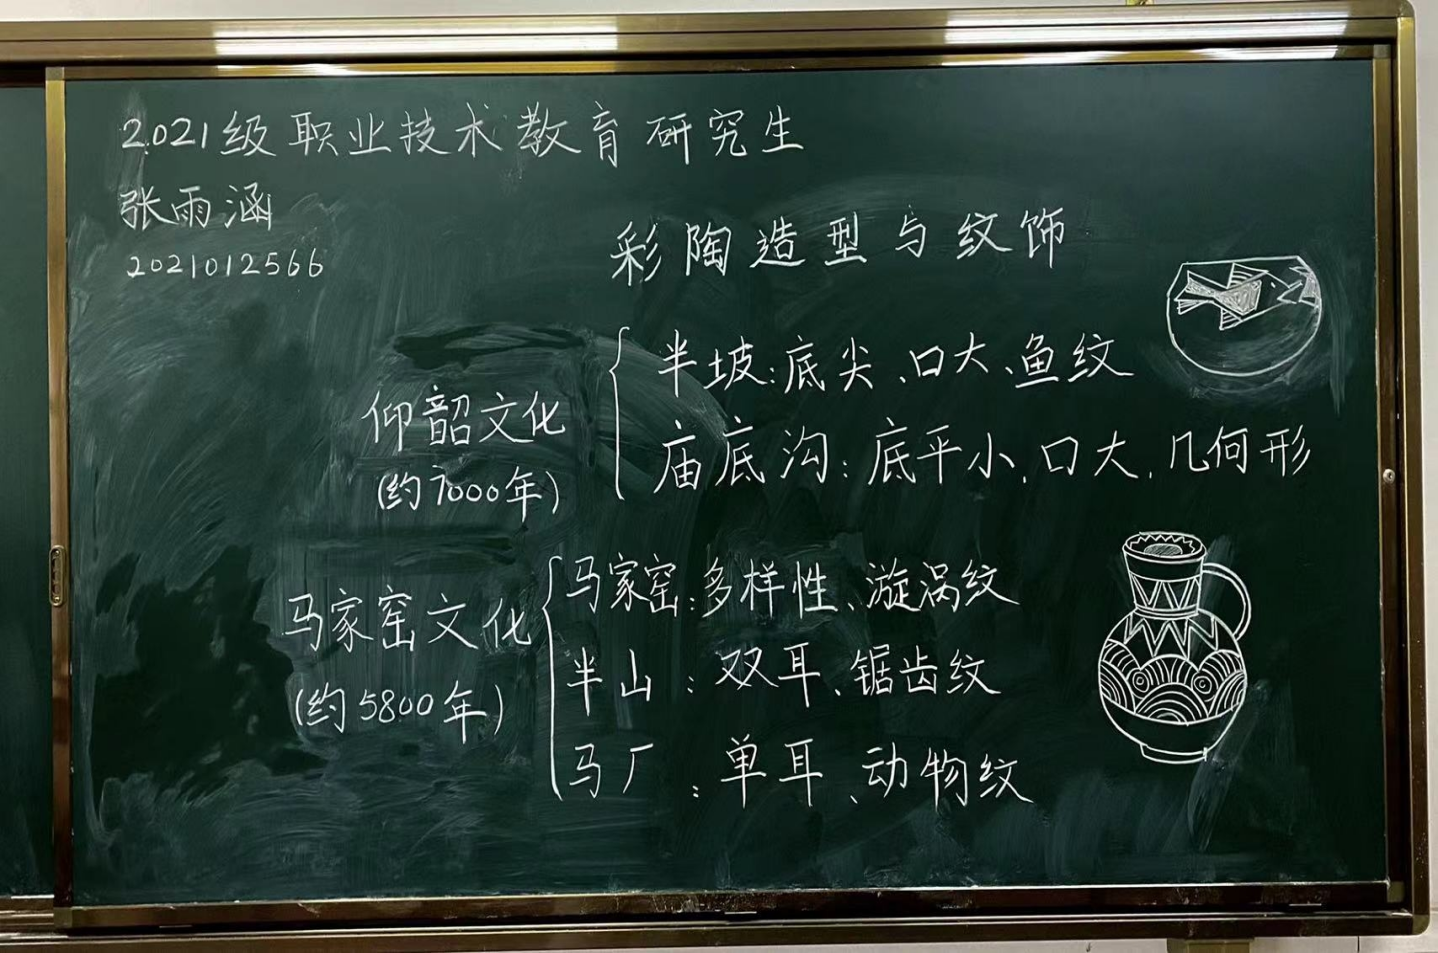 2021级职业技术教育研究生
张雨涵
2021012566
彩陶造型与纹饰
仰韶文化
(约7000年)
半坡:底尖、口大、鱼纹
庙底沟:底平小、口大、几何形
马家窑文化
(约5800年)
马家窑:多样性、漩涡纹
半山:双耳、锯齿纹
马厂:单耳、动物纹